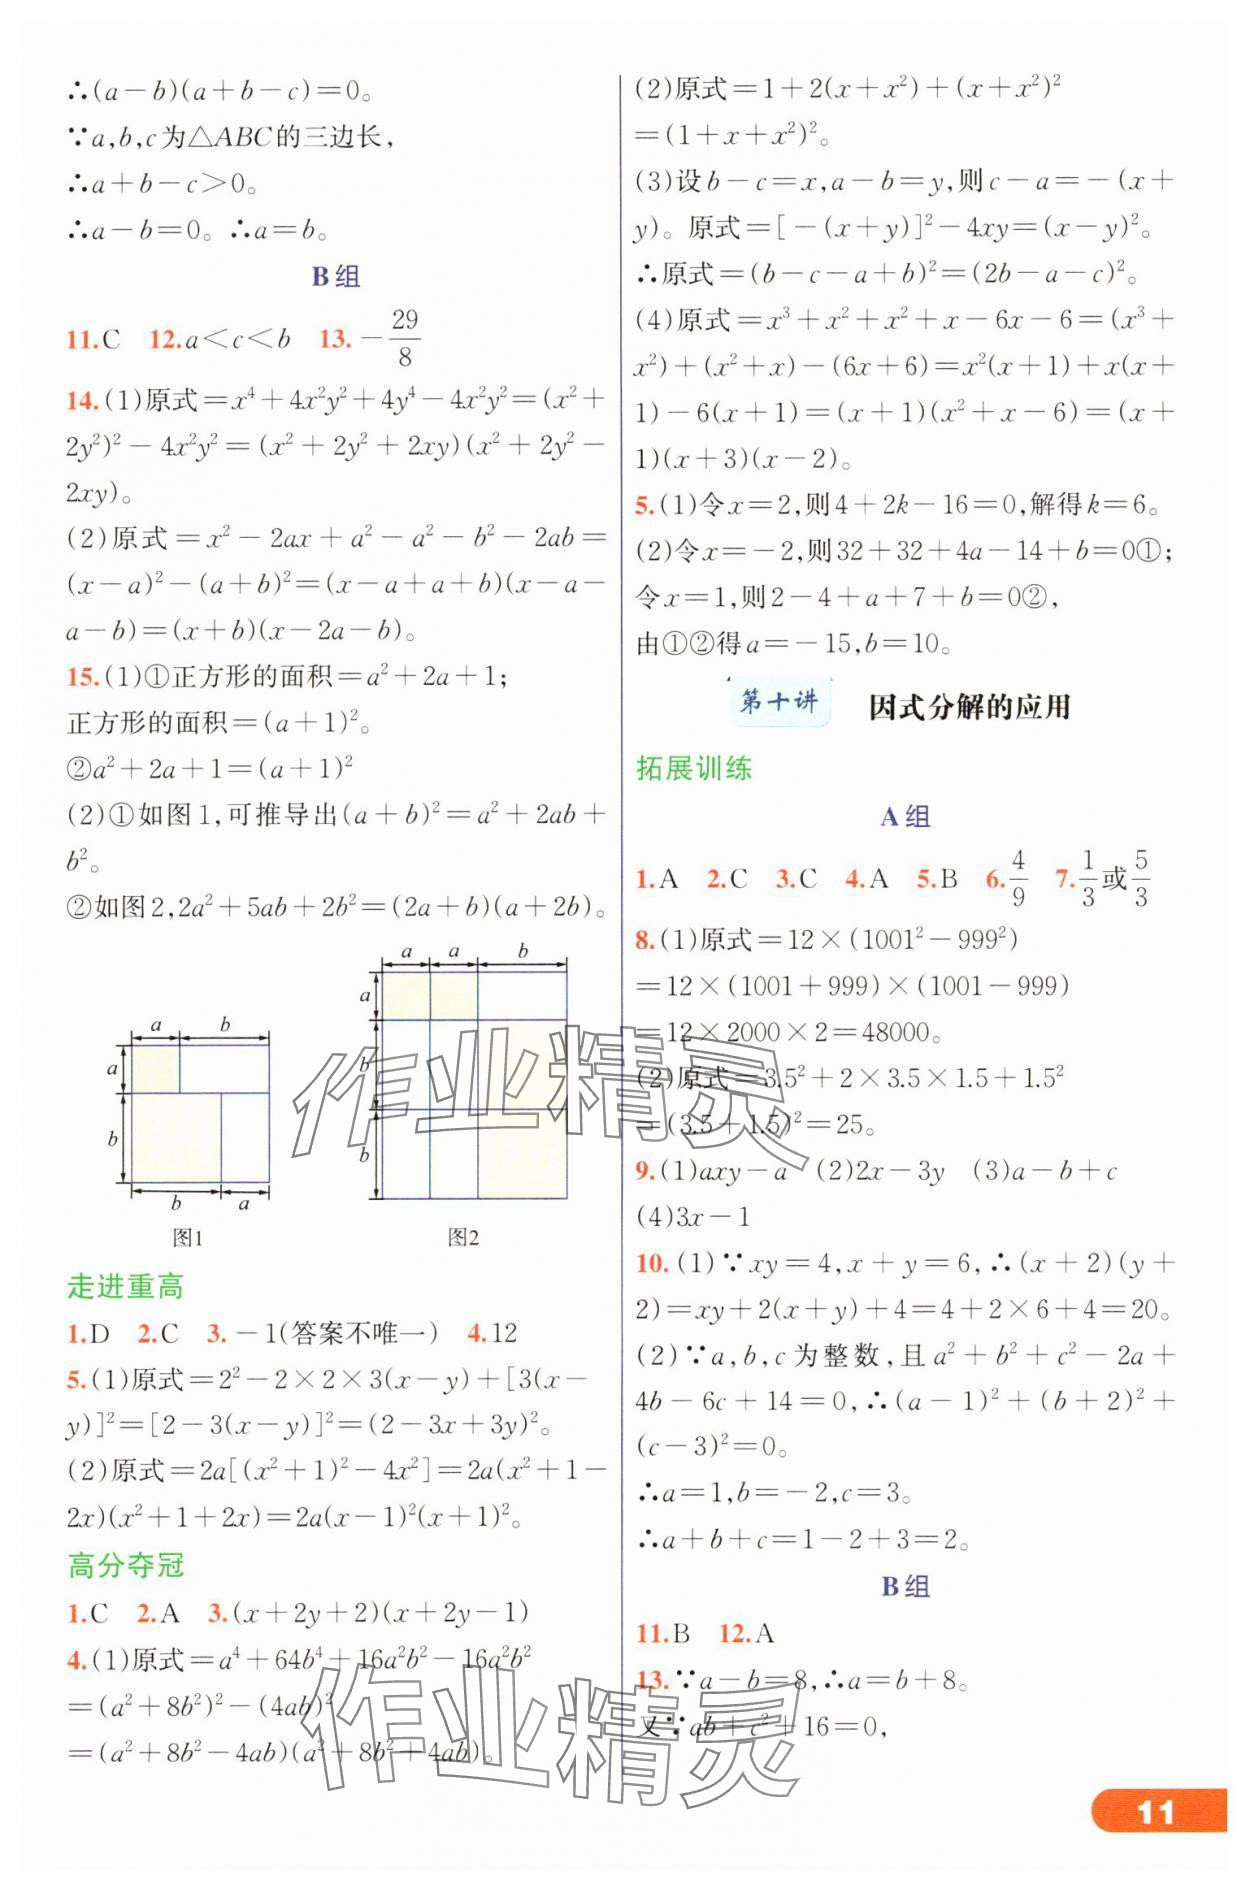 ∴(a－b)(a＋b－c)＝0。
∵a,b,c为△ABC的三边长,
∴a＋b－c＞0。
∴a－b＝0。∴a＝b。
B组
11.C 12.a＜c＜b 13.－29/8
14.(1)原式＝x⁴＋4x²y²＋4y⁴－4x²y²＝(x²＋
2y²)²－4x²y²＝(x²＋2y²＋2xy)(x²＋2y²－
2xy)。
(2)原式＝x²－2ax＋a²－a²－b²－2ab＝
(x－a)²－(a＋b)²＝(x－a＋a＋b)(x－a－
a－b)＝(x＋b)(x－2a－b)。
15.(1)①正方形的面积＝a²＋2a＋1;
正方形的面积＝(a＋1)²。
②a²＋2a＋1＝(a＋1)²
(2)①如图1,可推导出(a＋b)²＝a²＋2ab＋
b²。
②如图2,2a²＋5ab＋2b²＝(2a＋b)(a＋2b)。
a b
a
b
b a
图1
a a b
a
b
b
图2
走进重高
1.D 2.C 3.－1(答案不唯一) 4.12
5.(1)原式＝2²－2×2×3(x－y)＋[3(x－
y)]²＝[2－3(x－y)]²＝(2－3x＋3y)²。
(2)原式＝2a[(x²＋1)²－4x²]＝2a(x²＋1－
2x)(x²＋1＋2x)＝2a(x－1)²(x＋1)²。
高分夺冠
1.C 2.A 3.(x＋2y＋2)(x＋2y－1)
4.(1)原式＝a⁴＋64b⁴＋16a²b²－16a²b²
＝(a²＋8b²)²－(4ab)²
＝(a²＋8b²－4ab)(a²＋8b²＋4ab)。
(2)原式＝1＋2(x＋x²)＋(x＋x²)²
＝(1＋x＋x²)²。
(3)设b－c＝x,a－b＝y,则c－a＝－(x＋
y)。原式＝[－(x＋y)]²－4xy＝(x－y)²。
∴原式＝(b－c－a＋b)²＝(2b－a－c)²。
(4)原式＝x³＋x²＋x²＋x－6x－6＝(x³＋
x²)＋(x²＋x)－(6x＋6)＝x²(x＋1)＋x(x＋
1)－6(x＋1)＝(x＋1)(x²＋x－6)＝(x＋
1)(x＋3)(x－2)。
5.(1)令x＝2,则4＋2k－16＝0,解得k＝6。
(2)令x＝－2,则32＋32＋4a－14＋b＝0①;
令x＝1,则2－4＋a＋7＋b＝0②,
由①②得a＝－15,b＝10。
第十讲 因式分解的应用
拓展训练
A组
1.A 2.C 3.C 4.A 5.B 6.4/9 7.1/3或5/3
8.(1)原式＝12×(1001²－999²)
＝12×(1001＋999)×(1001－999)
＝12×2000×2＝48000。
(2)原式＝3.5²＋2×3.5×1.5＋1.5²
＝(3.5＋1.5)²＝25。
9.(1)axy－a (2)2x－3y (3)a－b＋c
(4)3x－1
10.(1)∵xy＝4,x＋y＝6,∴(x＋2)(y＋
2)＝xy＋2(x＋y)＋4＝4＋2×6＋4＝20。
(2)∵a,b,c为整数,且a²＋b²＋c²－2a＋
4b－6c＋14＝0,∴(a－1)²＋(b＋2)²＋
(c－3)²＝0。
∴a＝1,b＝－2,c＝3。
∴a＋b＋c＝1－2＋3＝2。
B组
11.B 12.A
13.∵a－b＝8,∴a＝b＋8。
又∵ab＋c²＋16＝0,
11
作业精灵
作业精灵